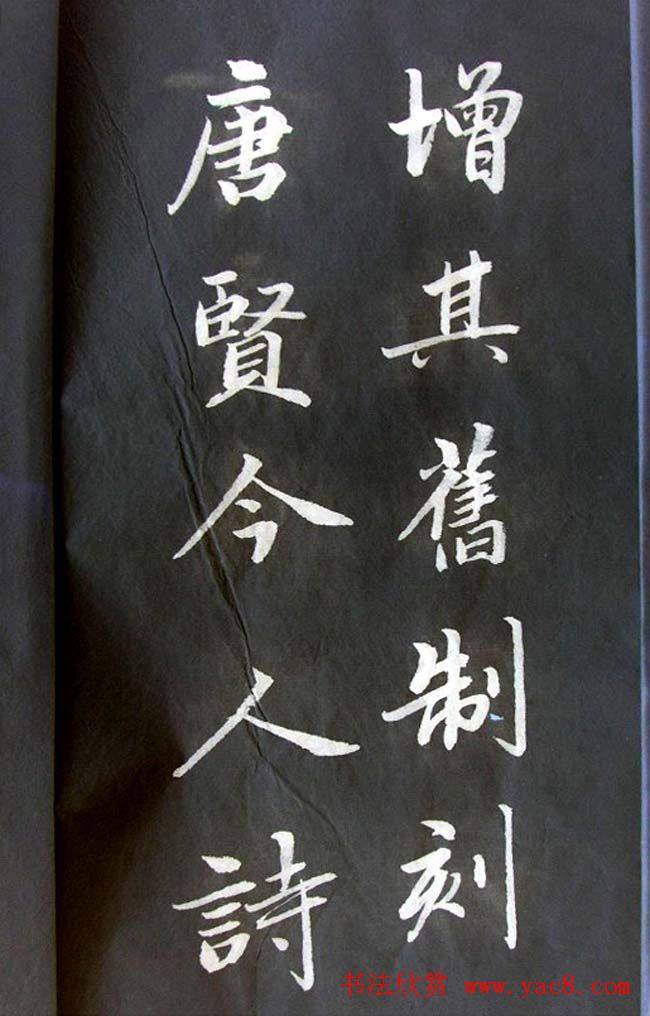 增其舊制刻
唐賢今人詩
书法欣赏 www.yac8.com